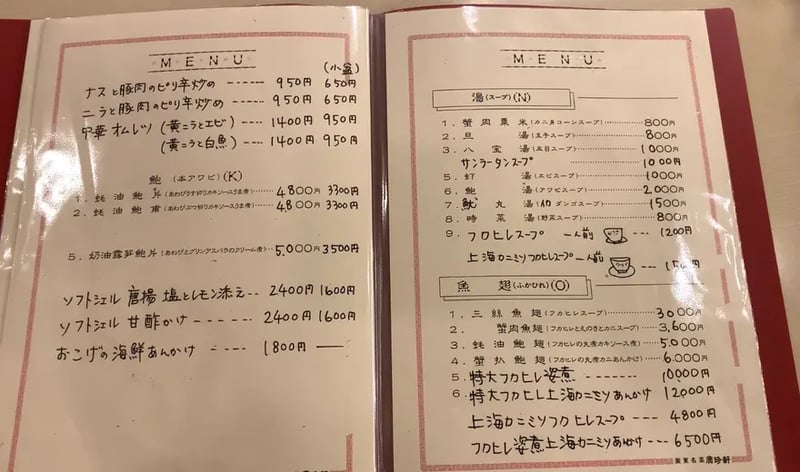 MENU
(小盆)
ナスと豚肉のピリ辛炒め ----- 950円 650円
ニラと豚肉のピリ辛炒め ---- 950円 650円
中華オムレツ (黄ニラとエビ) ---- 1400円 950円
(黄ニラと白魚) ---- 1400円 950円
鮑 (本アワビ)(K)
1. 蚝油鮑片 (あわびうす切りカキソースうま煮) 4800円 3300円
2. 蚝油鮑甫 (あわびぶつ切りカキソースうま煮) 4800円 3300円
5. 奶油露笋鮑片 (あわびとグリンアスパラのクリーム煮) 5.000円 3500円
ソフトシェル 唐揚 塩とレモン添え-- 2400円 1600円
ソフトシェル 甘酢かけ ----- 2400円 1600円
おこげの海鮮あんかけ ---- 1800円 ——
MENU
湯(スープ)(N)
1. 蟹肉粟米 (カニ身コーンスープ) 800円
2. 旦湯 (玉子スープ) 800円
3. 八宝湯 (五目スープ) 1000円
サンラータンスープ 1000円
5. 虾湯 (エビスープ) 1000円
6. 鮑湯 (アワビスープ) 2.000円
7. 魷丸湯 (イカダンゴスープ) 1500円
8. 時菜湯 (野菜スープ) 800円
9. フカヒレスープ 一人前 --- 1200円
上海カニミソフカヒレスープ 一人前 --- 円
魚翅(ふかひれ)(O)
1. 三絲魚翅 (フカヒレスープ) 3000円
2. 蟹肉魚翅 (フカヒレとえのきとカニスープ) 3,600円
3. 蚝油鮑翅 (フカヒレの丸煮カキソース煮) 5.000円
4. 蟹扒鮑翅 (フカヒレの丸煮カニあんかけ) 6.000円
5. 特大フカヒレ姿煮 ------- 10.000円
6. 特大フカヒレ上海カニミソあんかけ 12000円
上海カニミソフカヒレスープ --- 4800円
フカヒレ姿煮上海カニミソあんかけ --- 6500円
廣東名菜廣珍軒